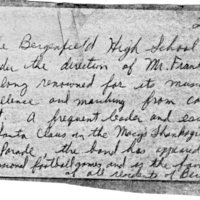 e Bergenfield High School
der the direction of Mr. Frank
long renowned for its mus
ellence and marching from co
t. A frequent leader and es
anta Claus in the Macy's Thanksgi
Parade, the band has appeared
ssional football games and is the
of all residents of Be